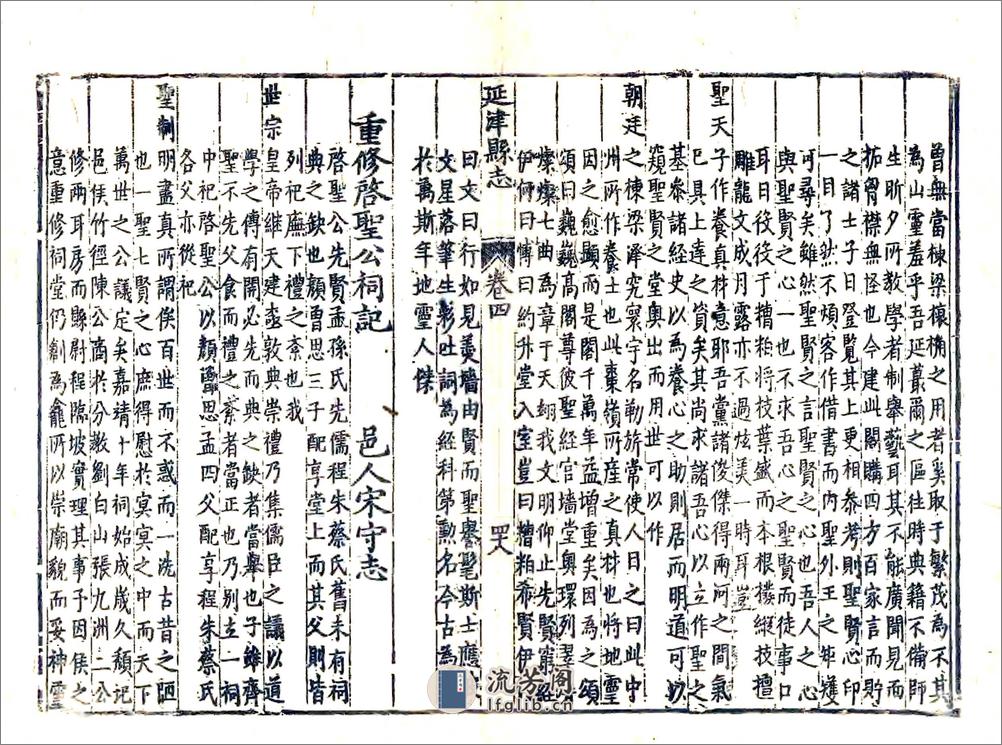 曾無當棟梁榱桷之用者奚取于繁茂為不其
為山靈羞乎吾延蕞爾之區往時典籍不備師
生昕夕所教學者制舉藝耳其不能廣聞見而
拓胷襟無怪也今建此閣購四方百家言而貯
之諸士子日登覽其上更相叅考則聖賢心印
一目了然不煩客作借書而內聖外王之矩矱
可尋矣雖然聖賢之言聖賢之心也吾人之心
與聖賢之心一也不求吾心之聖賢而徒事口
耳日役役于糟粕將技葉盛而本根撥縱技擅
雕龍文成月露亦不過炫美一時耳豈
聖天
子作養真材意耶吾黨諸俊傑得兩河之間氣
已具上達之資矣其尚求諸吾心以立作聖之
基叅諸經史以為養心之助則居而明道可以
窺聖賢之堂奧出而用世可以作
朝廷
之棟梁澤究寰宇名勒旂常使人曰之曰此中
州所作養士也此棗嶺所產之真材也將地靈
因之愈顯而是閣千萬年益增重矣因為之頌
頌曰巍巍高閣尊彼聖經宮墻堂奧環列翠屏
燦燦七曲為章于天翊我文明仰止先賢窮經
伊何曰博曰約升堂入室豈曰糟粕希賢伊
延津縣志
卷四
四八
曰文曰行如見羹墻由賢而聖譽髦斯士應
文星落筆生彩吐詞為經科第勲名今古為
於萬斯年地靈人傑
重修啓聖公祠記 邑人宋守志
啓聖公先賢孟孫氏先儒程朱蔡氏舊未有祠
典之缺也顏曾思三子配享堂上而其父則皆
列祀廡下禮之紊也我
世宗
皇帝維天建極敦典崇禮乃集儒臣之議以道
學之傳有開必先而典之缺者當舉也子雖齊
聖不先父食而禮之紊者當正也乃別立一祠
中祀啓聖公以顏曾思孟四父配享程朱蔡氏
各父亦從祀
聖制
明盡真所謂俟百世而不惑而一洗古昔之陋
也一聖七賢之心庶得慰於冥冥之中而天下
萬世之公議定矣嘉靖十年祠始成歲久頹圮
邑侯竹徑陳公商於分教劉白山張九洲二公
修兩耳房而縣尉程臨坡實理其事予因侯之
意重修祠堂仍創為龕所以崇廟貌而妥神靈
流芳閣
lfglib.cn